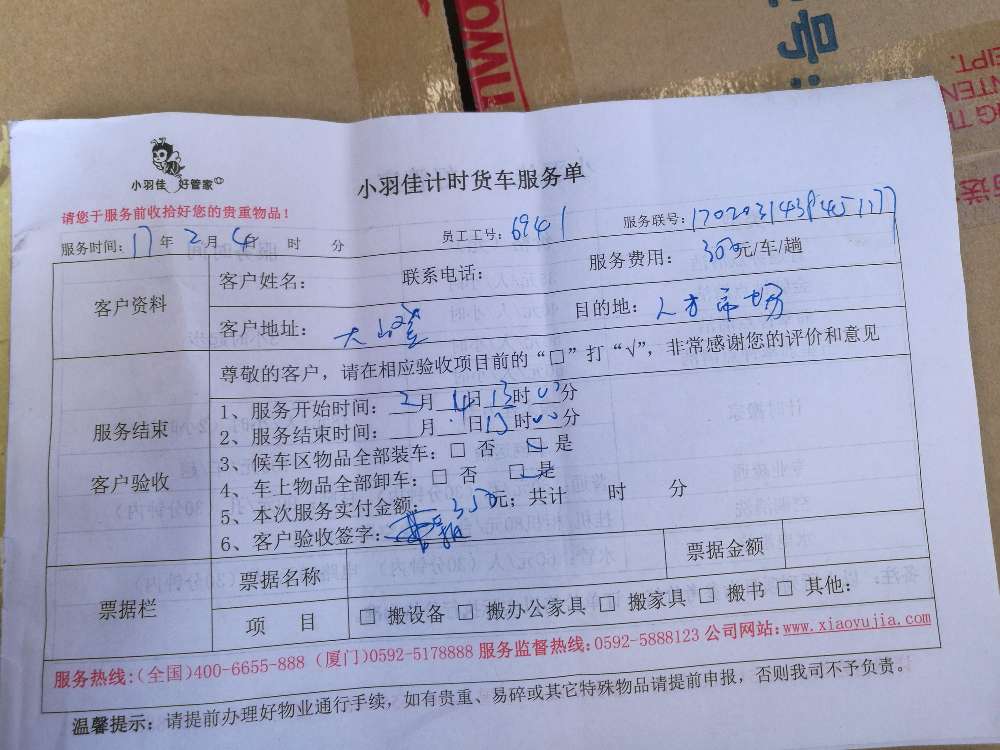 小羽佳 好管家
小羽佳计时货车服务单
请您于服务前收拾好您的贵重物品！
服务时间：17年2月4日 时 分 员工工号：6941 服务联号：
客户资料
客户姓名： 联系电话： 服务费用：元/车/趟
客户地址： 目的地：人才市场
尊敬的客户，请在相应验收项目前的“□”打“√”，非常感谢您的评价和意见
服务结束
客户验收
1、服务开始时间：2月4日13时00分
2、服务结束时间：月日时00分
3、候车区物品全部装车：□ 否 □ 是
4、车上物品全部卸车：□ 否 □ 是
5、本次服务实付金额：350元；共计 时 分
6、客户验收签字：
票据栏
票据名称 票据金额
项 目 □ 搬设备 □ 搬办公家具 □ 搬家具 □ 搬书 □ 其他：
服务热线:(全国)400-6655-888 (厦门)0592-5178888 服务监督热线:0592-5888123 公司网站:www.xiaoyujia.com
温馨提示：请提前办理好物业通行手续，如有贵重、易碎或其它特殊物品请提前申报，否则我司不予负责。